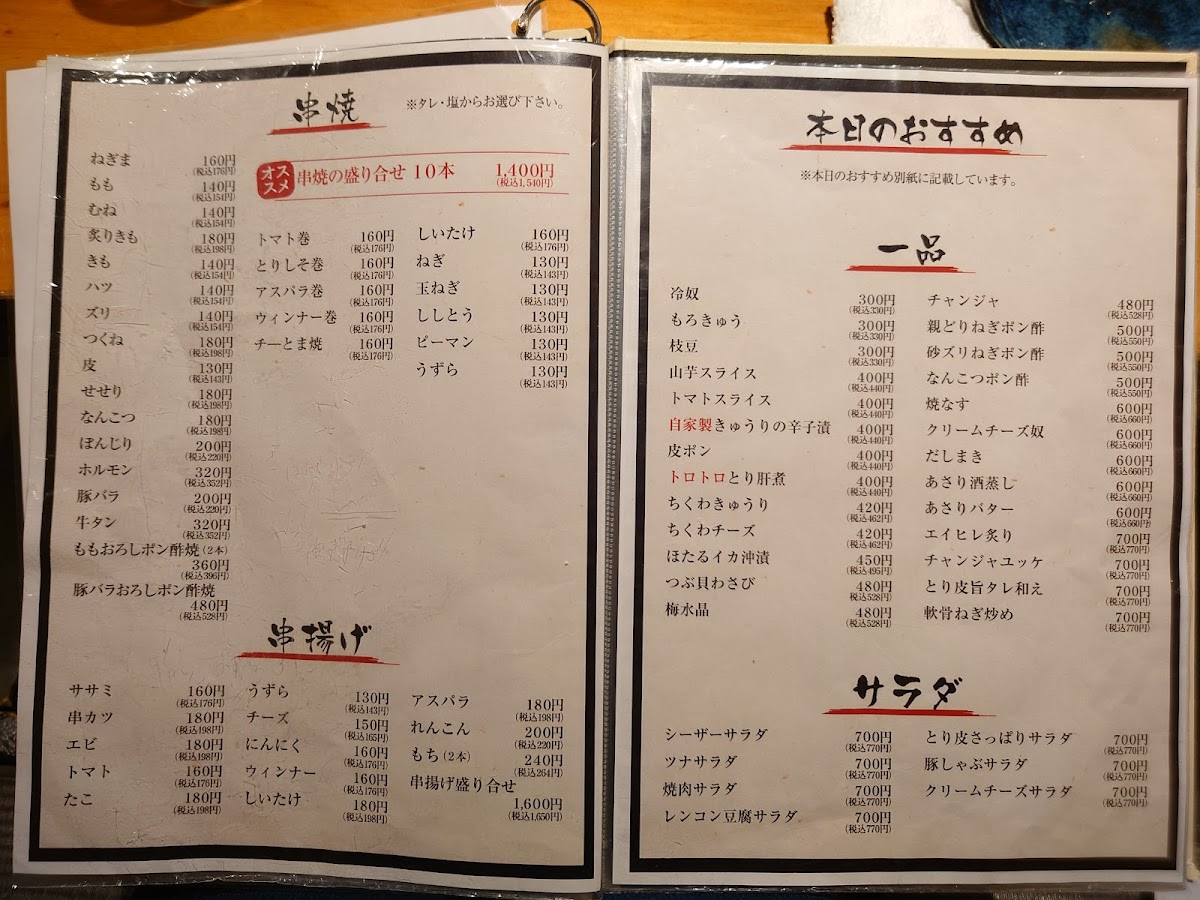 串焼
※タレ・塩からお選び下さい。
オススメ 串焼の盛り合せ 10本 1,400円
(税込1,540円)
ねぎま 160円
(税込176円)
もも 140円
(税込154円)
むね 140円
(税込154円)
炙りきも 180円
(税込198円)
きも 140円
(税込154円)
ハツ 140円
(税込154円)
ズリ 140円
(税込154円)
つくね 180円
(税込198円)
皮 130円
(税込143円)
せせり 180円
(税込198円)
なんこつ 180円
(税込198円)
ぼんじり 200円
(税込220円)
ホルモン 320円
(税込352円)
豚バラ 200円
(税込220円)
牛タン 320円
(税込352円)
ももおろしポン酢焼(2本)
360円
(税込396円)
豚バラおろしポン酢焼
480円
(税込528円)
トマト巻 160円
(税込176円)
とりしそ巻 160円
(税込176円)
アスパラ巻 160円
(税込176円)
ウィンナー巻 160円
(税込176円)
チーとま焼 160円
(税込176円)
しいたけ 160円
(税込176円)
ねぎ 130円
(税込143円)
玉ねぎ 130円
(税込143円)
ししとう 130円
(税込143円)
ピーマン 130円
(税込143円)
うずら 130円
(税込143円)
串揚げ
ササミ 160円
(税込176円)
串カツ 180円
(税込198円)
エビ 180円
(税込198円)
トマト 160円
(税込176円)
たこ 180円
(税込198円)
うずら 130円
(税込143円)
チーズ 150円
(税込165円)
にんにく 160円
(税込176円)
ウィンナー 160円
(税込176円)
しいたけ 180円
(税込198円)
アスパラ 180円
(税込198円)
れんこん 200円
(税込220円)
もち(2本) 240円
(税込264円)
串揚げ盛り合せ
1,600円
(税込1,650円)
本日のおすすめ
※本日のおすすめ別紙に記載しています。
一品
冷奴 300円
(税込330円)
もろきゅう 300円
(税込330円)
枝豆 300円
(税込330円)
山芋スライス 400円
(税込440円)
トマトスライス 400円
(税込440円)
自家製きゅうりの辛子漬 400円
(税込440円)
皮ポン 400円
(税込440円)
トロトロとり肝煮 400円
(税込440円)
ちくわきゅうり 420円
(税込462円)
ちくわチーズ 420円
(税込462円)
ほたるイカ沖漬 450円
(税込495円)
つぶ貝わさび 480円
(税込528円)
梅水晶 480円
(税込528円)
チャンジャ 480円
(税込528円)
親どりねぎポン酢 500円
(税込550円)
砂ズリねぎポン酢 500円
(税込550円)
なんこつポン酢 500円
(税込550円)
焼なす 600円
(税込660円)
クリームチーズ奴 600円
(税込660円)
だしまき 600円
(税込660円)
あさり酒蒸し 600円
(税込660円)
あさりバター 600円
(税込660円)
エイヒレ炙り 700円
(税込770円)
チャンジャユッケ 700円
(税込770円)
とり皮旨タレ和え 700円
(税込770円)
軟骨ねぎ炒め 700円
(税込770円)
サラダ
シーザーサラダ 700円
(税込770円)
ツナサラダ 700円
(税込770円)
焼肉サラダ 700円
(税込770円)
レンコン豆腐サラダ 700円
(税込770円)
とり皮さっぱりサラダ 700円
(税込770円)
豚しゃぶサラダ 700円
(税込770円)
クリームチーズサラダ 700円
(税込770円)